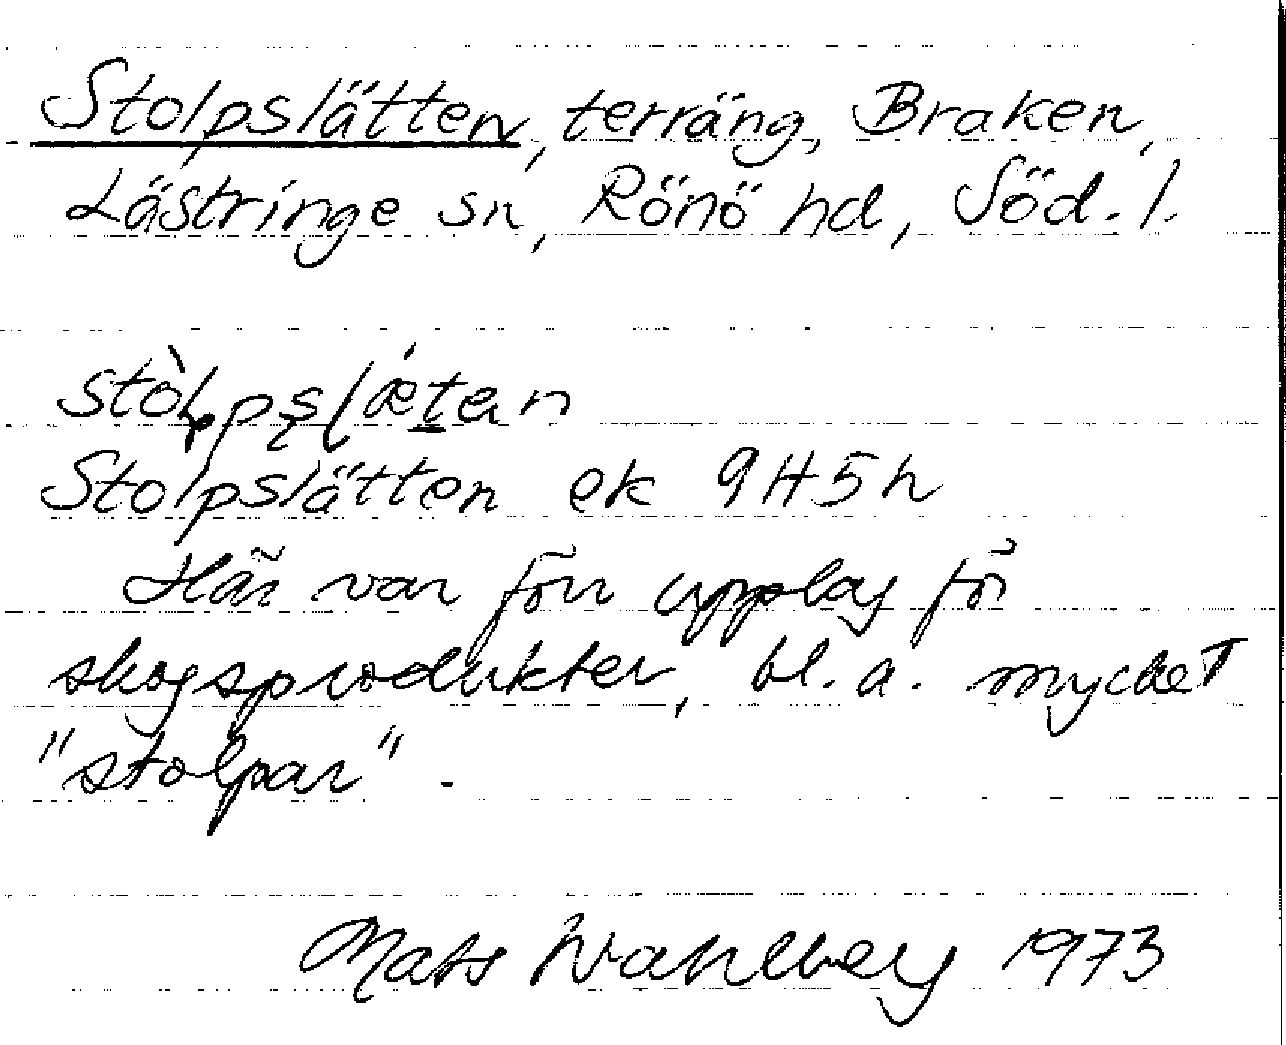 Stolpslätten, terräng, Braken,
Lästringe sn, Rönö hd, Söd. l.
stòlpslǽtan
Stolpslätten ek 9H5h
Här var förr upplag för
skogsprodukter, bl. a. mycket
"stolpar".
Mats Wahlberg 1973